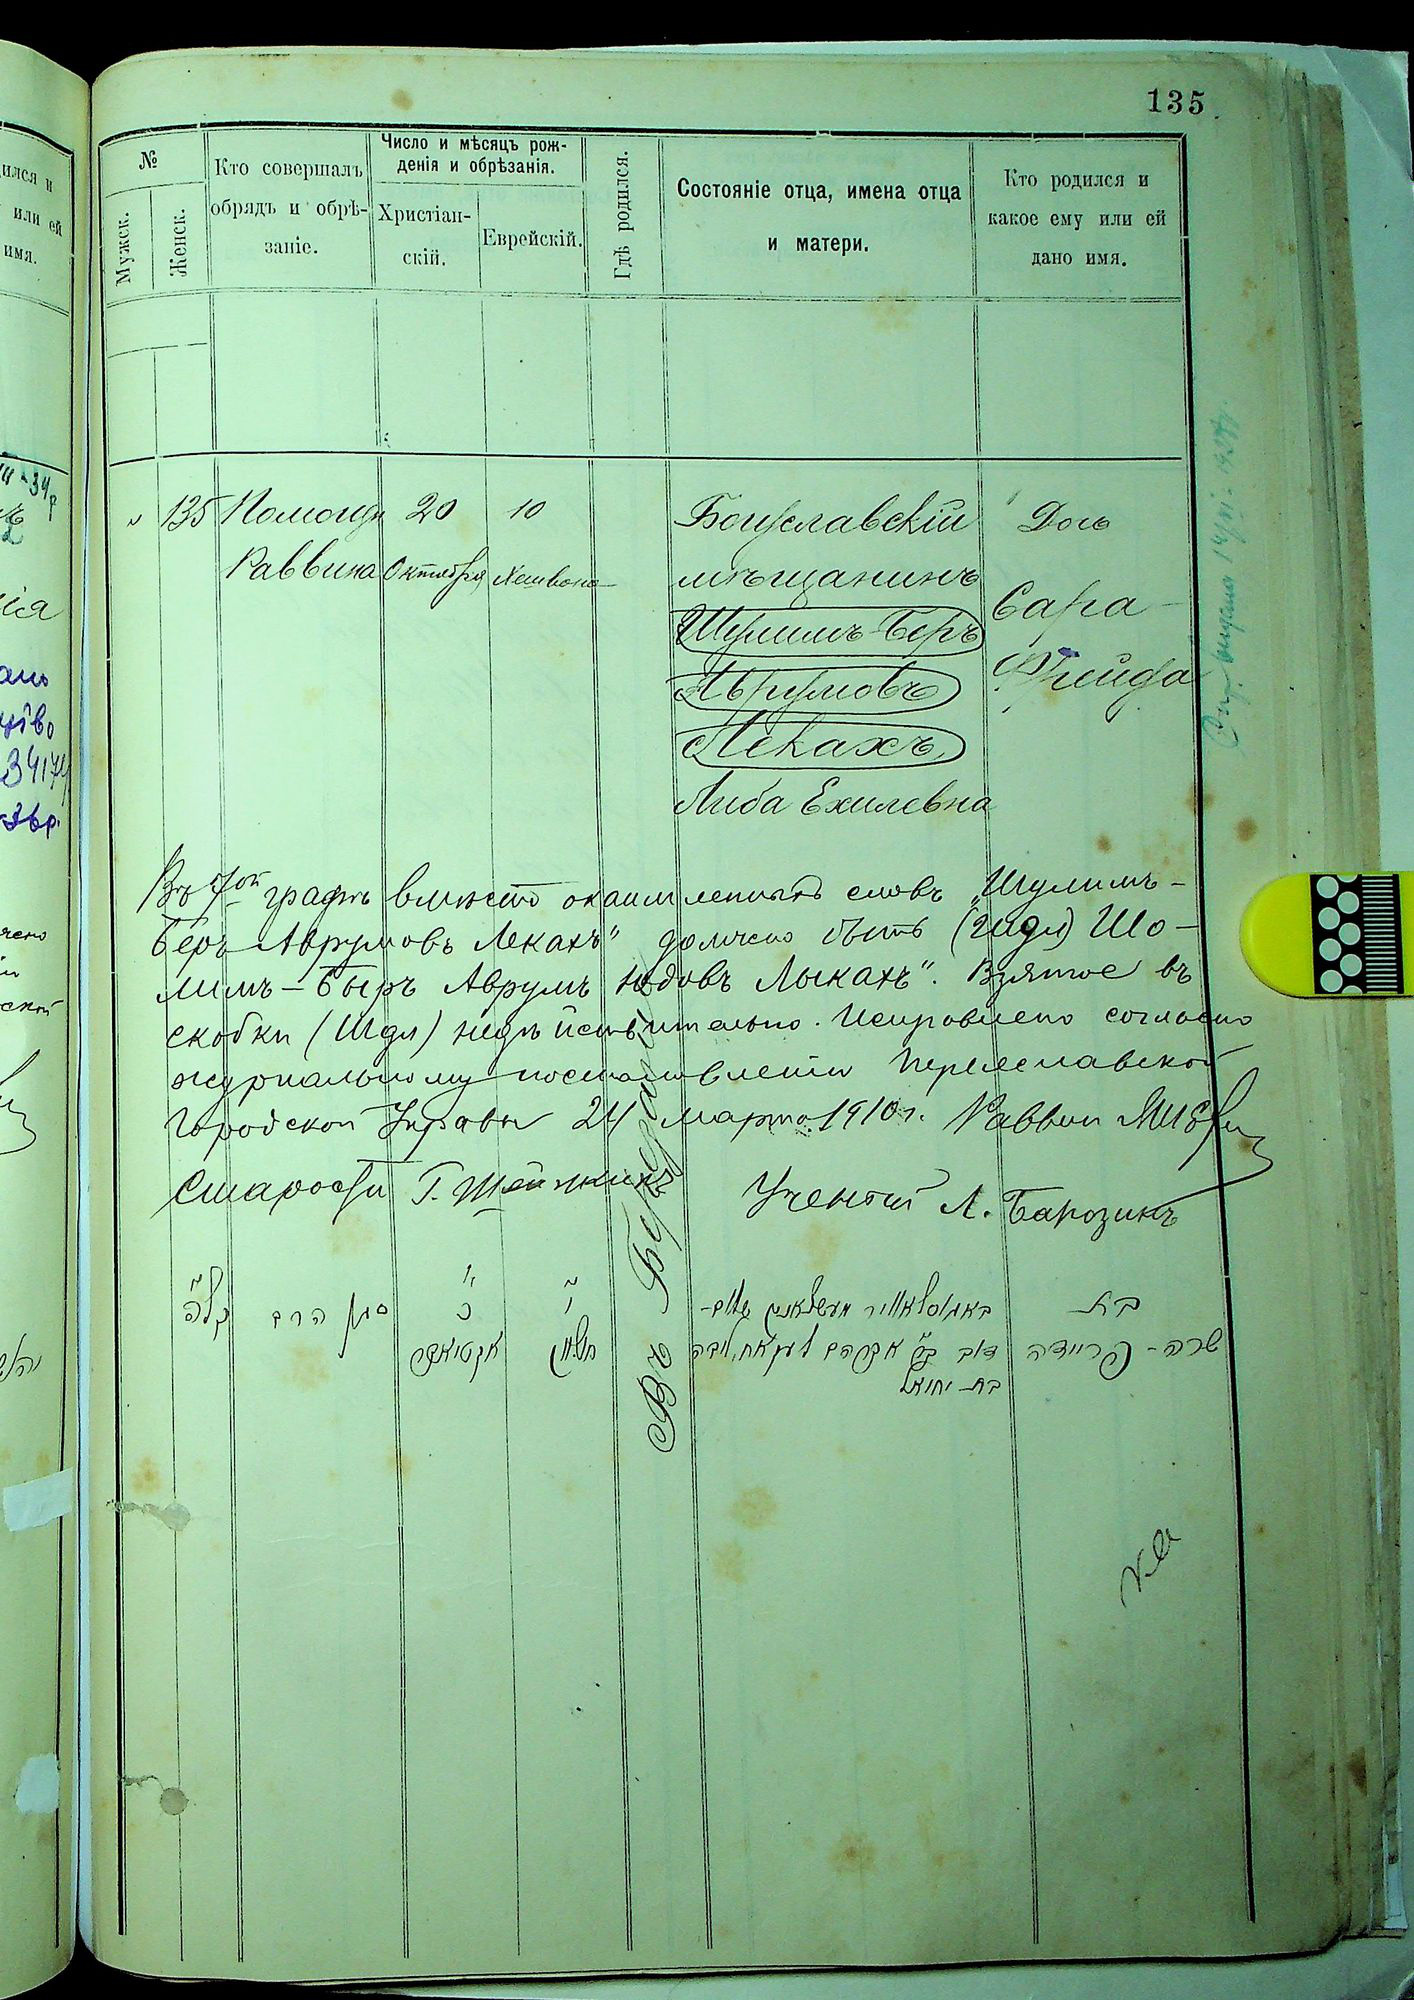 135
№
Мужск.
Женск.
Кто совершалъ
обрядъ и обрѣ-
заніе.
Число и мѣсяцъ рож-
денія и обрѣзанія.
Христіан-
скій.
Еврейскій.
Гдѣ родился.
Состояніе отца, имена отца
и матери.
Кто родился и
какое ему или ей
дано имя.
135
Помощн
Раввина
20
Октября
10
Хешвона
Богуславскій
мѣщанинъ
Шулимъ-Беръ
Аврумовъ
Лекахъ
Либа Ехилевна
Дочь
Сара-
Фрейда
Въ 7ой графѣ вмѣсто окаймленныхъ словъ „Шулимъ-
Беръ Аврумовъ Лекахъ" должно быть (Шдл) Шо-
лимъ-Беръ Аврумъ Юдовъ Лыкахъ". Взятое въ
скобки (Шдл) недѣйствительно. Исправлено согласно
журнальному постановленію Переяславской
Городской Управы 24 марта 1910 г. Раввин
Староста Г.
Ученый Л.
קלה
סגן הרב
כ
אקטיאבר
י
חשון
דוב בר אברהם
בת יחיאל
בת
שרה - פריידה